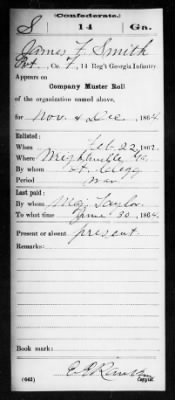 (Confederate.)
S 14 Ga.
James F. Smith
Pvt., Co. F, 14 Reg't Georgia Infantry.
Appears on
Company Muster Roll
of the organization named above,
for Nov & Dec, 1864.
Enlisted:
When Feb 22, 1862.
Where Wrightsville Ga.
By whom
Period War
Last paid:
By whom Maj. Taylor
To what time June 30, 1864.
Present or absent present.
Remarks:
Book mark:
(642) Copyist.